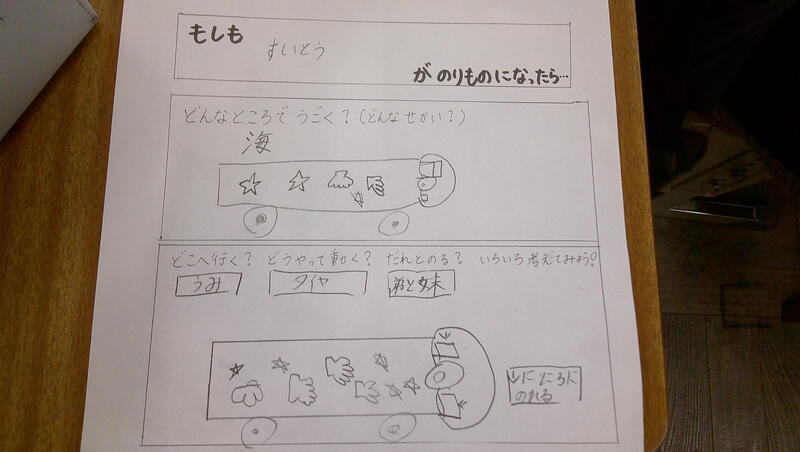 もしも
すいとう
が のりものになったら…
どんなところで うごく?(どんな せかい?)
海
どこへ行く? どうやって動く? だれとのる? いろいろ考えてみよう!
うみ タイヤ 弟と妹
↓にところに
のれる